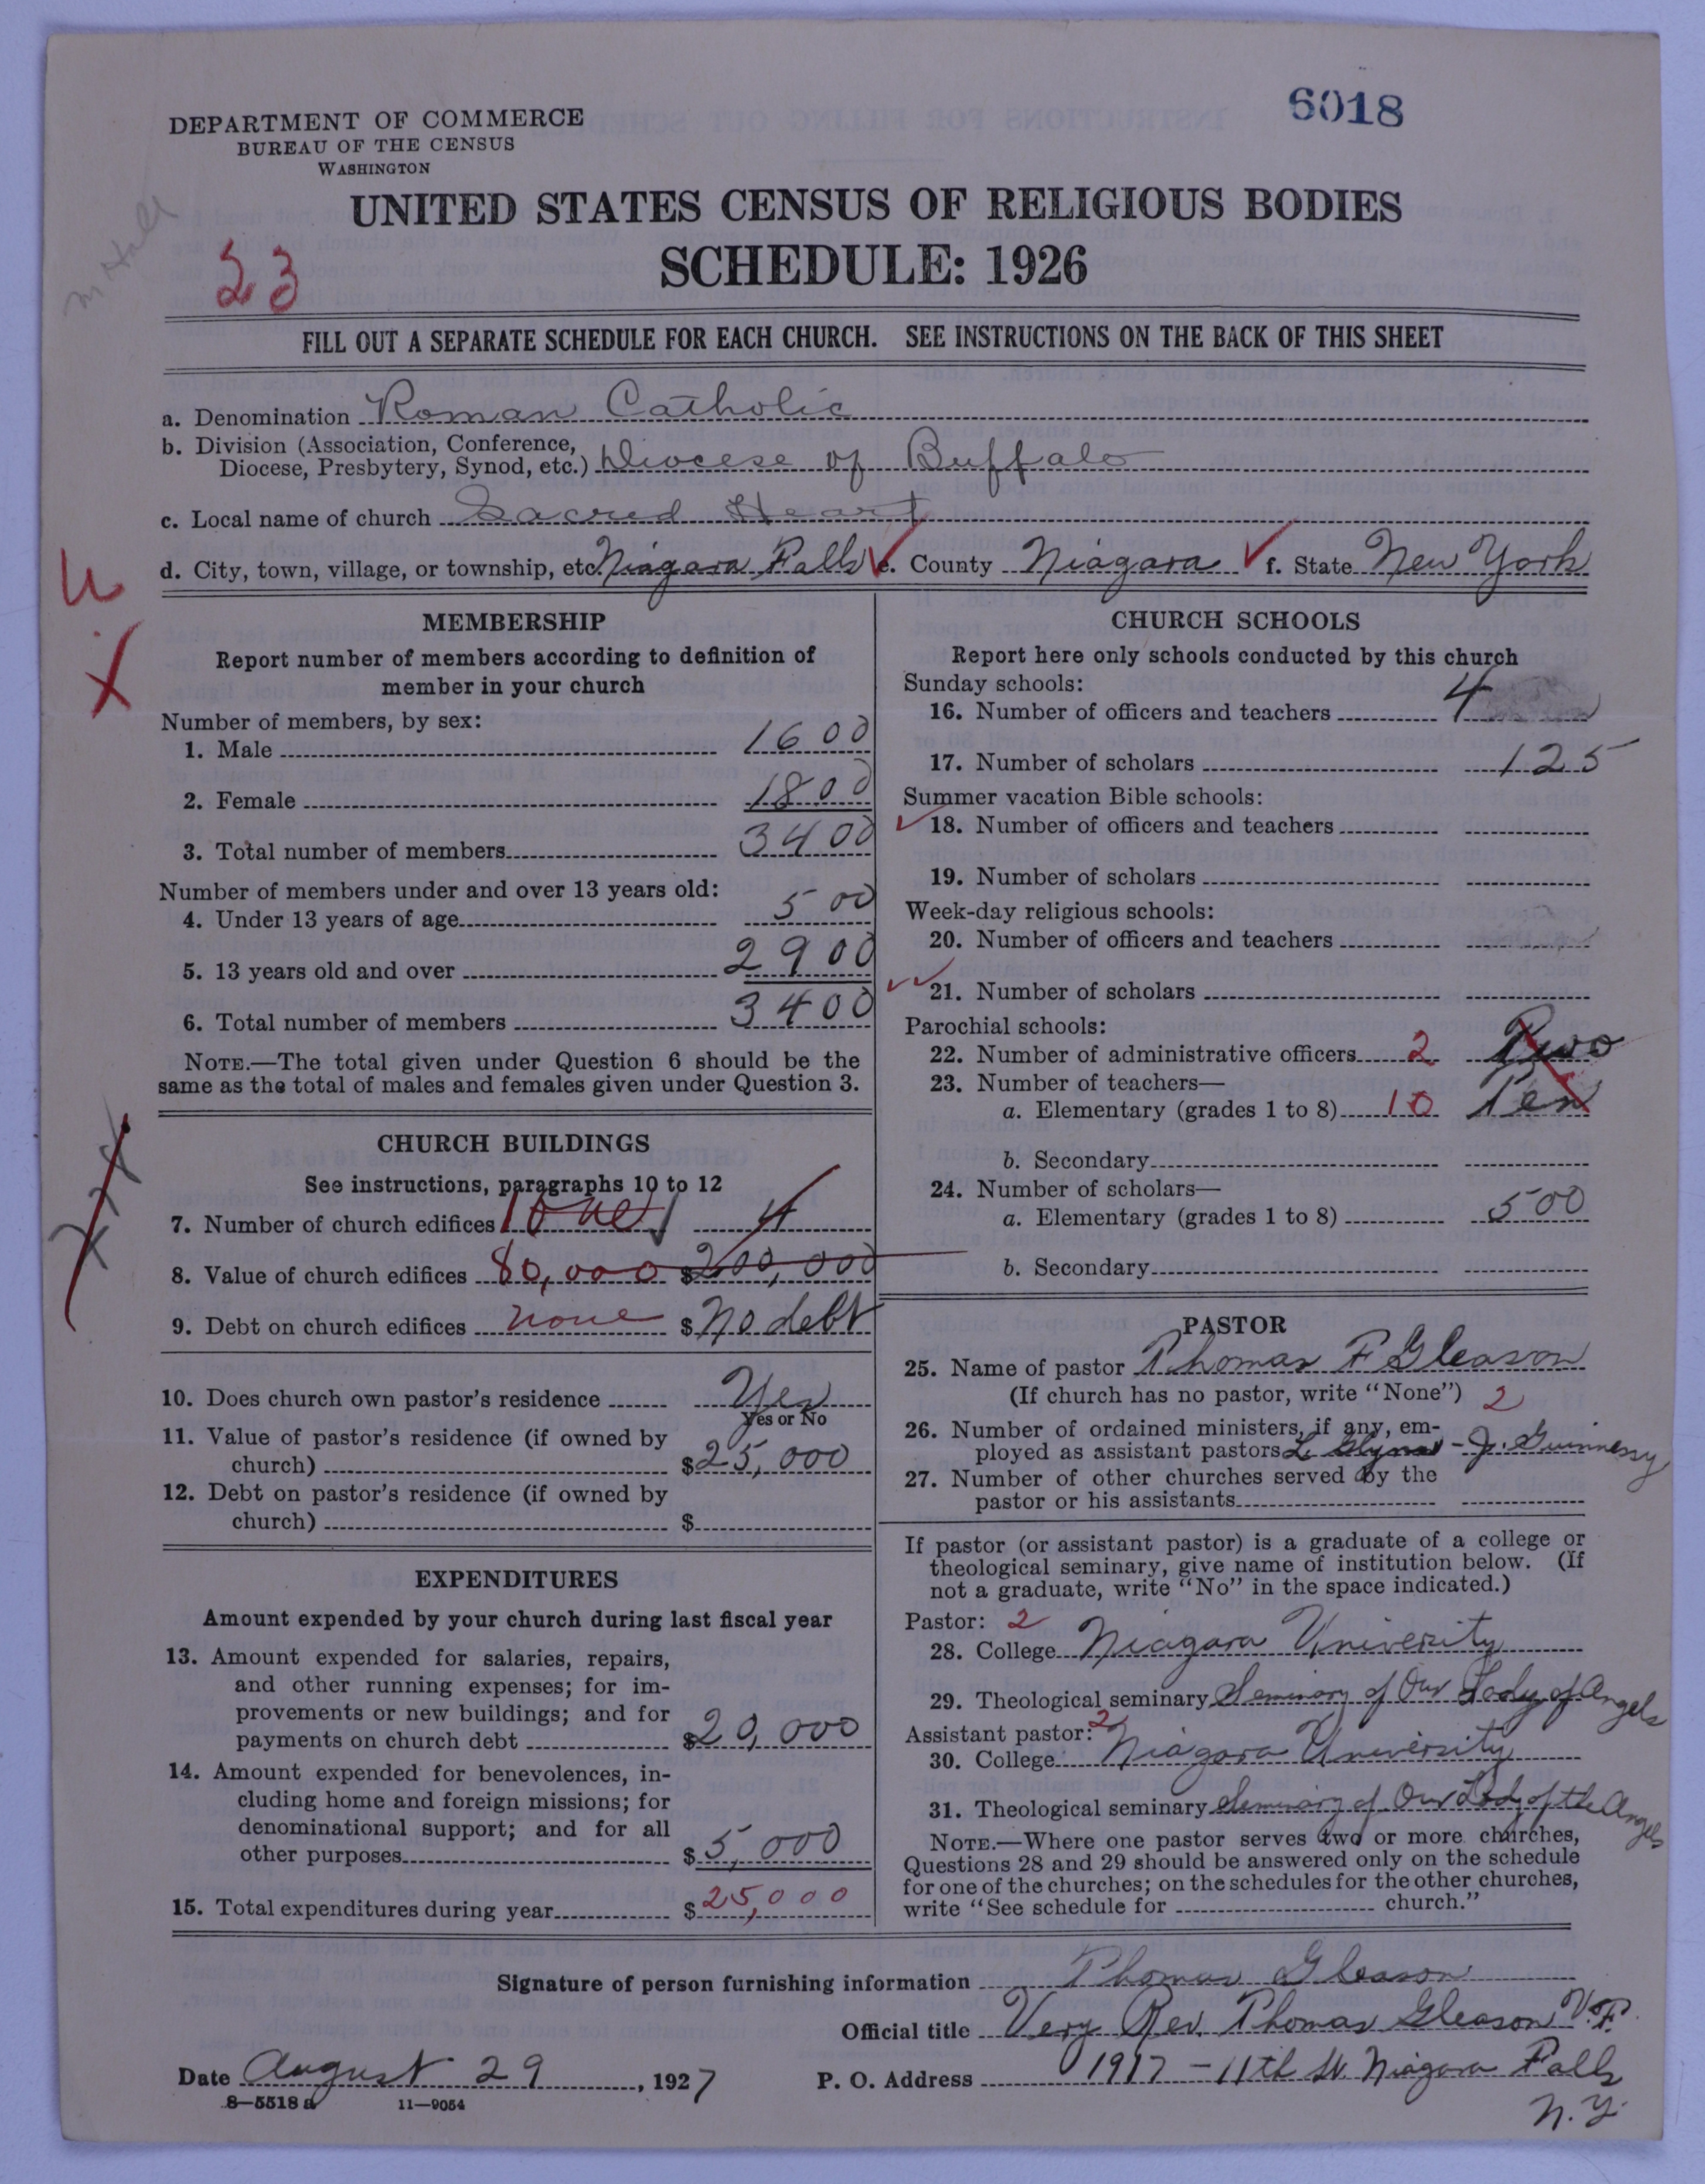 6018
DEPARTMENT OF COMMERCE
BUREAU OF THE CENSUS
WASHINGTON
UNITED STATES CENSUS OF RELIGIOUS BODIES
SCHEDULE: 1926
23
FILL OUT A SEPARATE SCHEDULE FOR EACH CHURCH. SEE INSTRUCTIONS ON THE BACK OF THIS SHEET
a. Denomination Roman Catholic
b. Division (Association, Conference,
Diocese, Presbytery, Synod, etc.) Diocese of Buffalo
c. Local name of church Sacred Heart
d. City, town, village, or township, etc. Niagara Falls e. County Niagara f. State New York
MEMBERSHIP
Report number of members according to definition of
member in your church
Number of members, by sex:
1. Male 1600
2. Female 1800
3. Total number of members 3400
Number of members under and over 13 years old:
4. Under 13 years of age 500
5. 13 years old and over 2900
6. Total number of members 3400
NOTE.—The total given under Question 6 should be the
same as the total of males and females given under Question 3.
CHURCH BUILDINGS
See instructions, paragraphs 10 to 12
7. Number of church edifices 1 one 4
8. Value of church edifices 80,000 $200,000
9. Debt on church edifices none $No debt
10. Does church own pastor's residence Yes
Yes or No
11. Value of pastor's residence (if owned by
church) $25,000
12. Debt on pastor's residence (if owned by
church) $
EXPENDITURES
Amount expended by your church during last fiscal year
13. Amount expended for salaries, repairs,
and other running expenses; for im-
provements or new buildings; and for
payments on church debt $20,000
14. Amount expended for benevolences, in-
cluding home and foreign missions; for
denominational support; and for all
other purposes $5,000
15. Total expenditures during year $25,000
CHURCH SCHOOLS
Report here only schools conducted by this church
Sunday schools:
16. Number of officers and teachers 4
17. Number of scholars 125
Summer vacation Bible schools:
18. Number of officers and teachers
19. Number of scholars
Week-day religious schools:
20. Number of officers and teachers
21. Number of scholars
Parochial schools:
22. Number of administrative officers 2 Two
23. Number of teachers—
a. Elementary (grades 1 to 8) 10 Ten
b. Secondary
24. Number of scholars—
a. Elementary (grades 1 to 8) 500
b. Secondary
PASTOR
25. Name of pastor Thomas F Gleason
(If church has no pastor, write "None") 2
26. Number of ordained ministers, if any, em-
ployed as assistant pastors L. Glynn - J. Guinnessy
27. Number of other churches served by the
pastor or his assistants
If pastor (or assistant pastor) is a graduate of a college or
theological seminary, give name of institution below. (If
not a graduate, write "No" in the space indicated.)
Pastor: 2
28. College Niagara Univerity
29. Theological seminary Seminary of Our Lady of Angels
Assistant pastor: 2
30. College Niagara University
31. Theological seminary Seminary of Our Lady of the Angels
NOTE.—Where one pastor serves two or more churches,
Questions 28 and 29 should be answered only on the schedule
for one of the churches; on the schedules for the other churches,
write "See schedule for church."
Signature of person furnishing information Thomas Gleason
Official title Very Rev. Thomas Gleason V.F.
Date August 29, 1927
P. O. Address 1917 - 11th St. Niagara Falls
N.Y.
8—5518 a 11—9054